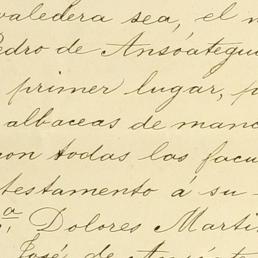 valedera sea, el n
Pedro de Ansóategui
primer lugar, p
albaceas de manc
con todas las facu
testamento á su
ª, Dolores Marti
José de